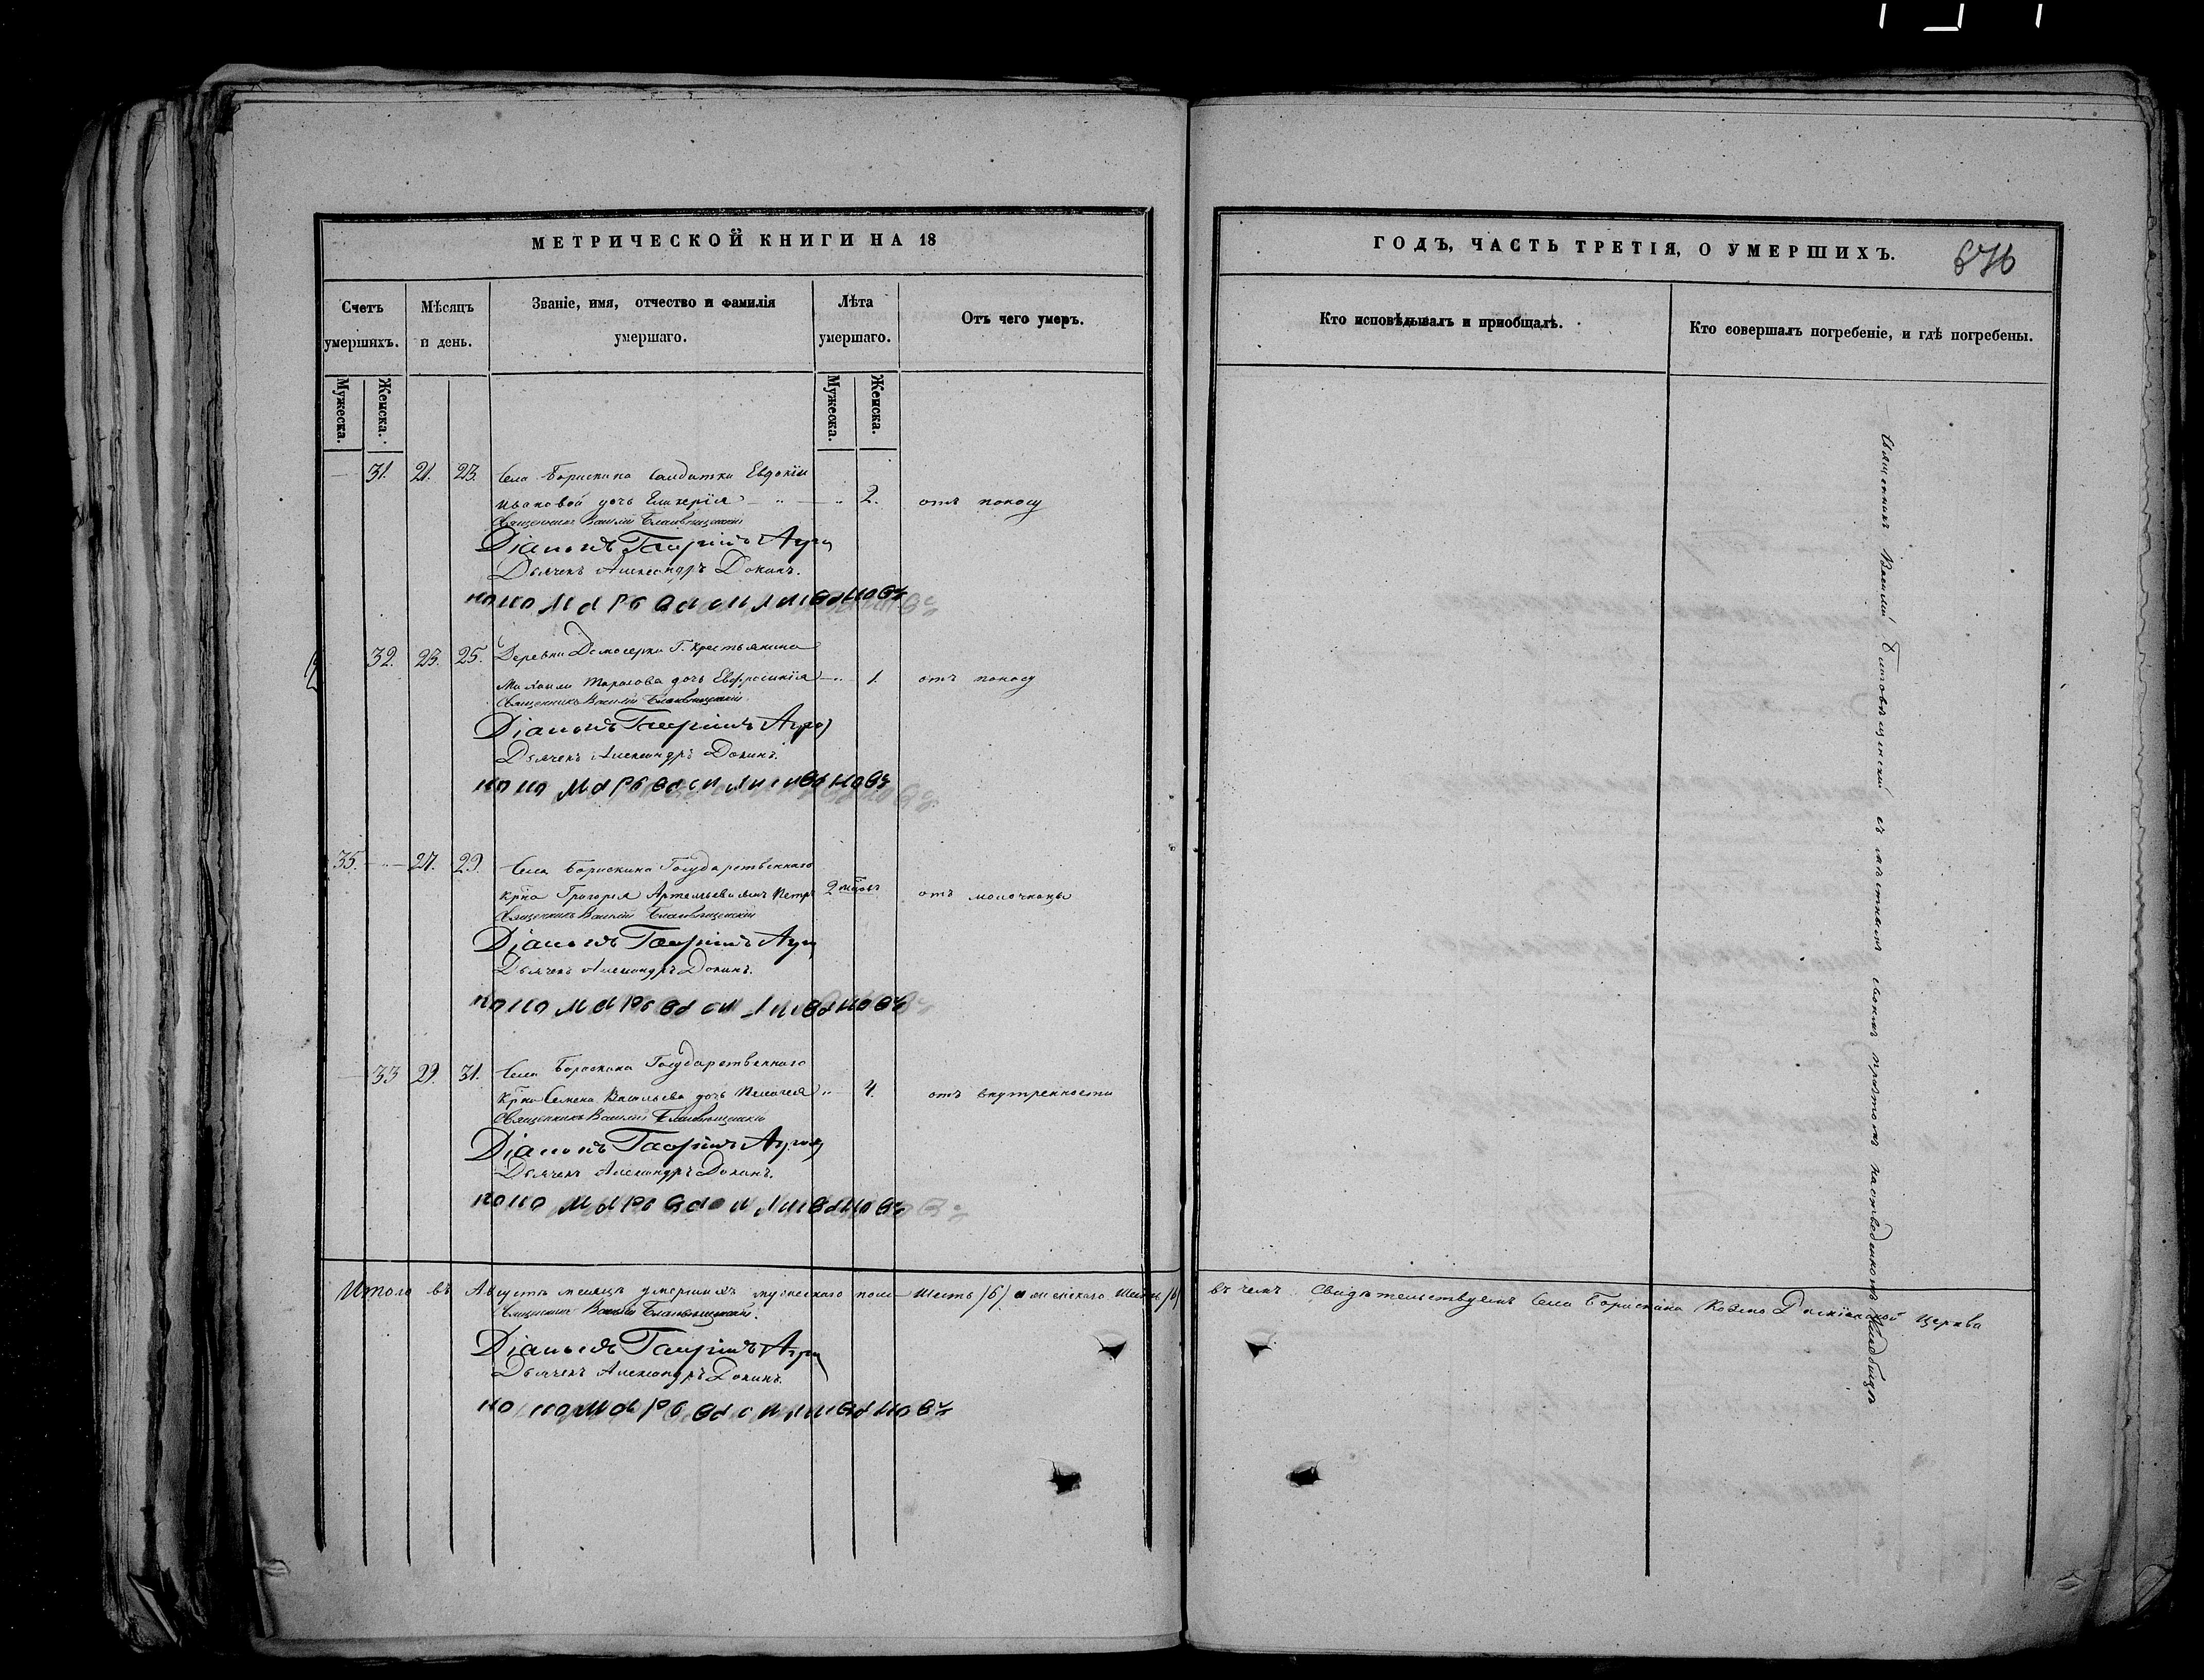 МЕТРИЧЕСКОЙ КНИГИ НА 18
Счетъ умершихъ.
Мѣсяцъ и день.
Званіе, имя, отчество и фамилія умершаго.
Лѣта умершаго.
Отъ чего умеръ.
Мужеска.
Женска.
Мужеска.
Женска.
31. 21. 23. Села Борискина Солдатки Евдокіи
Ивановой дочь Гликерія 2. отъ поносу
Священникъ Василій Благовѣщенскій
Діаконъ Гавріилъ
Дьячекъ Александръ Докинъ.
Пономарь Василій Ивановъ
32. 23. 25. Деревни Г. крестьянина
Михаила Тарасова дочь Евфросинія 1. отъ поносу
Священникъ Василій Благовѣщенскій
Діаконъ Гавріилъ
Дьячекъ Александръ Докинъ.
Пономарь Василій Ивановъ
35. 27. 29. Села Борискина Государственнаго
кр-на Григорія Артемьева сынъ Петръ 2 отъ молочницы
Священникъ Василій Благовѣщенскій
Діаконъ Гавріилъ
Дьячекъ Александръ Докинъ.
Пономарь Василій Ивановъ
33 29. 31. Села Борискина Государственнаго
кр-на Семена Васильева дочь Пелагея 4. отъ внутренности
Священникъ Василій Благовѣщенскій
Діаконъ Гавріилъ
Дьячекъ Александръ Докинъ.
Пономарь Василій Ивановъ
Итого въ Августѣ месяцѣ умершихъ мужескаго пола шесть /6/ а женскаго шесть /6/ въ чемъ Свидѣтельствуемъ Села Борискина Козмо Даміанской Церкви
Священникъ Василій Благовѣщенскій.
Діаконъ Гавріилъ
Дьячекъ Александръ Докинъ.
Пономарь Василій Ивановъ
ГОДЪ, ЧАСТЬ ТРЕТІЯ, О УМЕРШИХЪ.
676
Кто исповѣдывалъ и пріобщалъ.
Кто совершалъ погребеніе, и гдѣ погребены.
Священникъ Василій Благовѣщенскій съ мѣстнымъ своимъ причтомъ на отведенномъ кладбищѣ